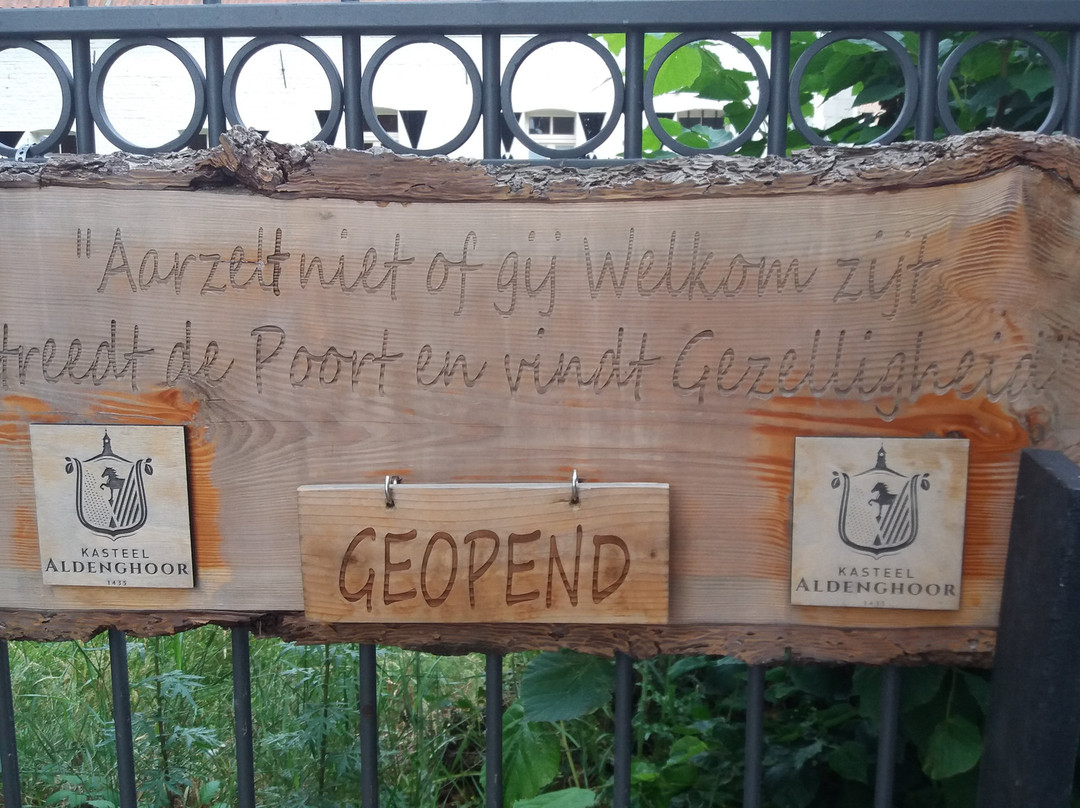 "Aarzelt niet of gij Welkom zijt,
treedt de Poort en vindt Gezelligheid"
GEOPEND
KASTEEL
ALDENGHOOR
1435
KASTEEL
ALDENGHOOR
1435